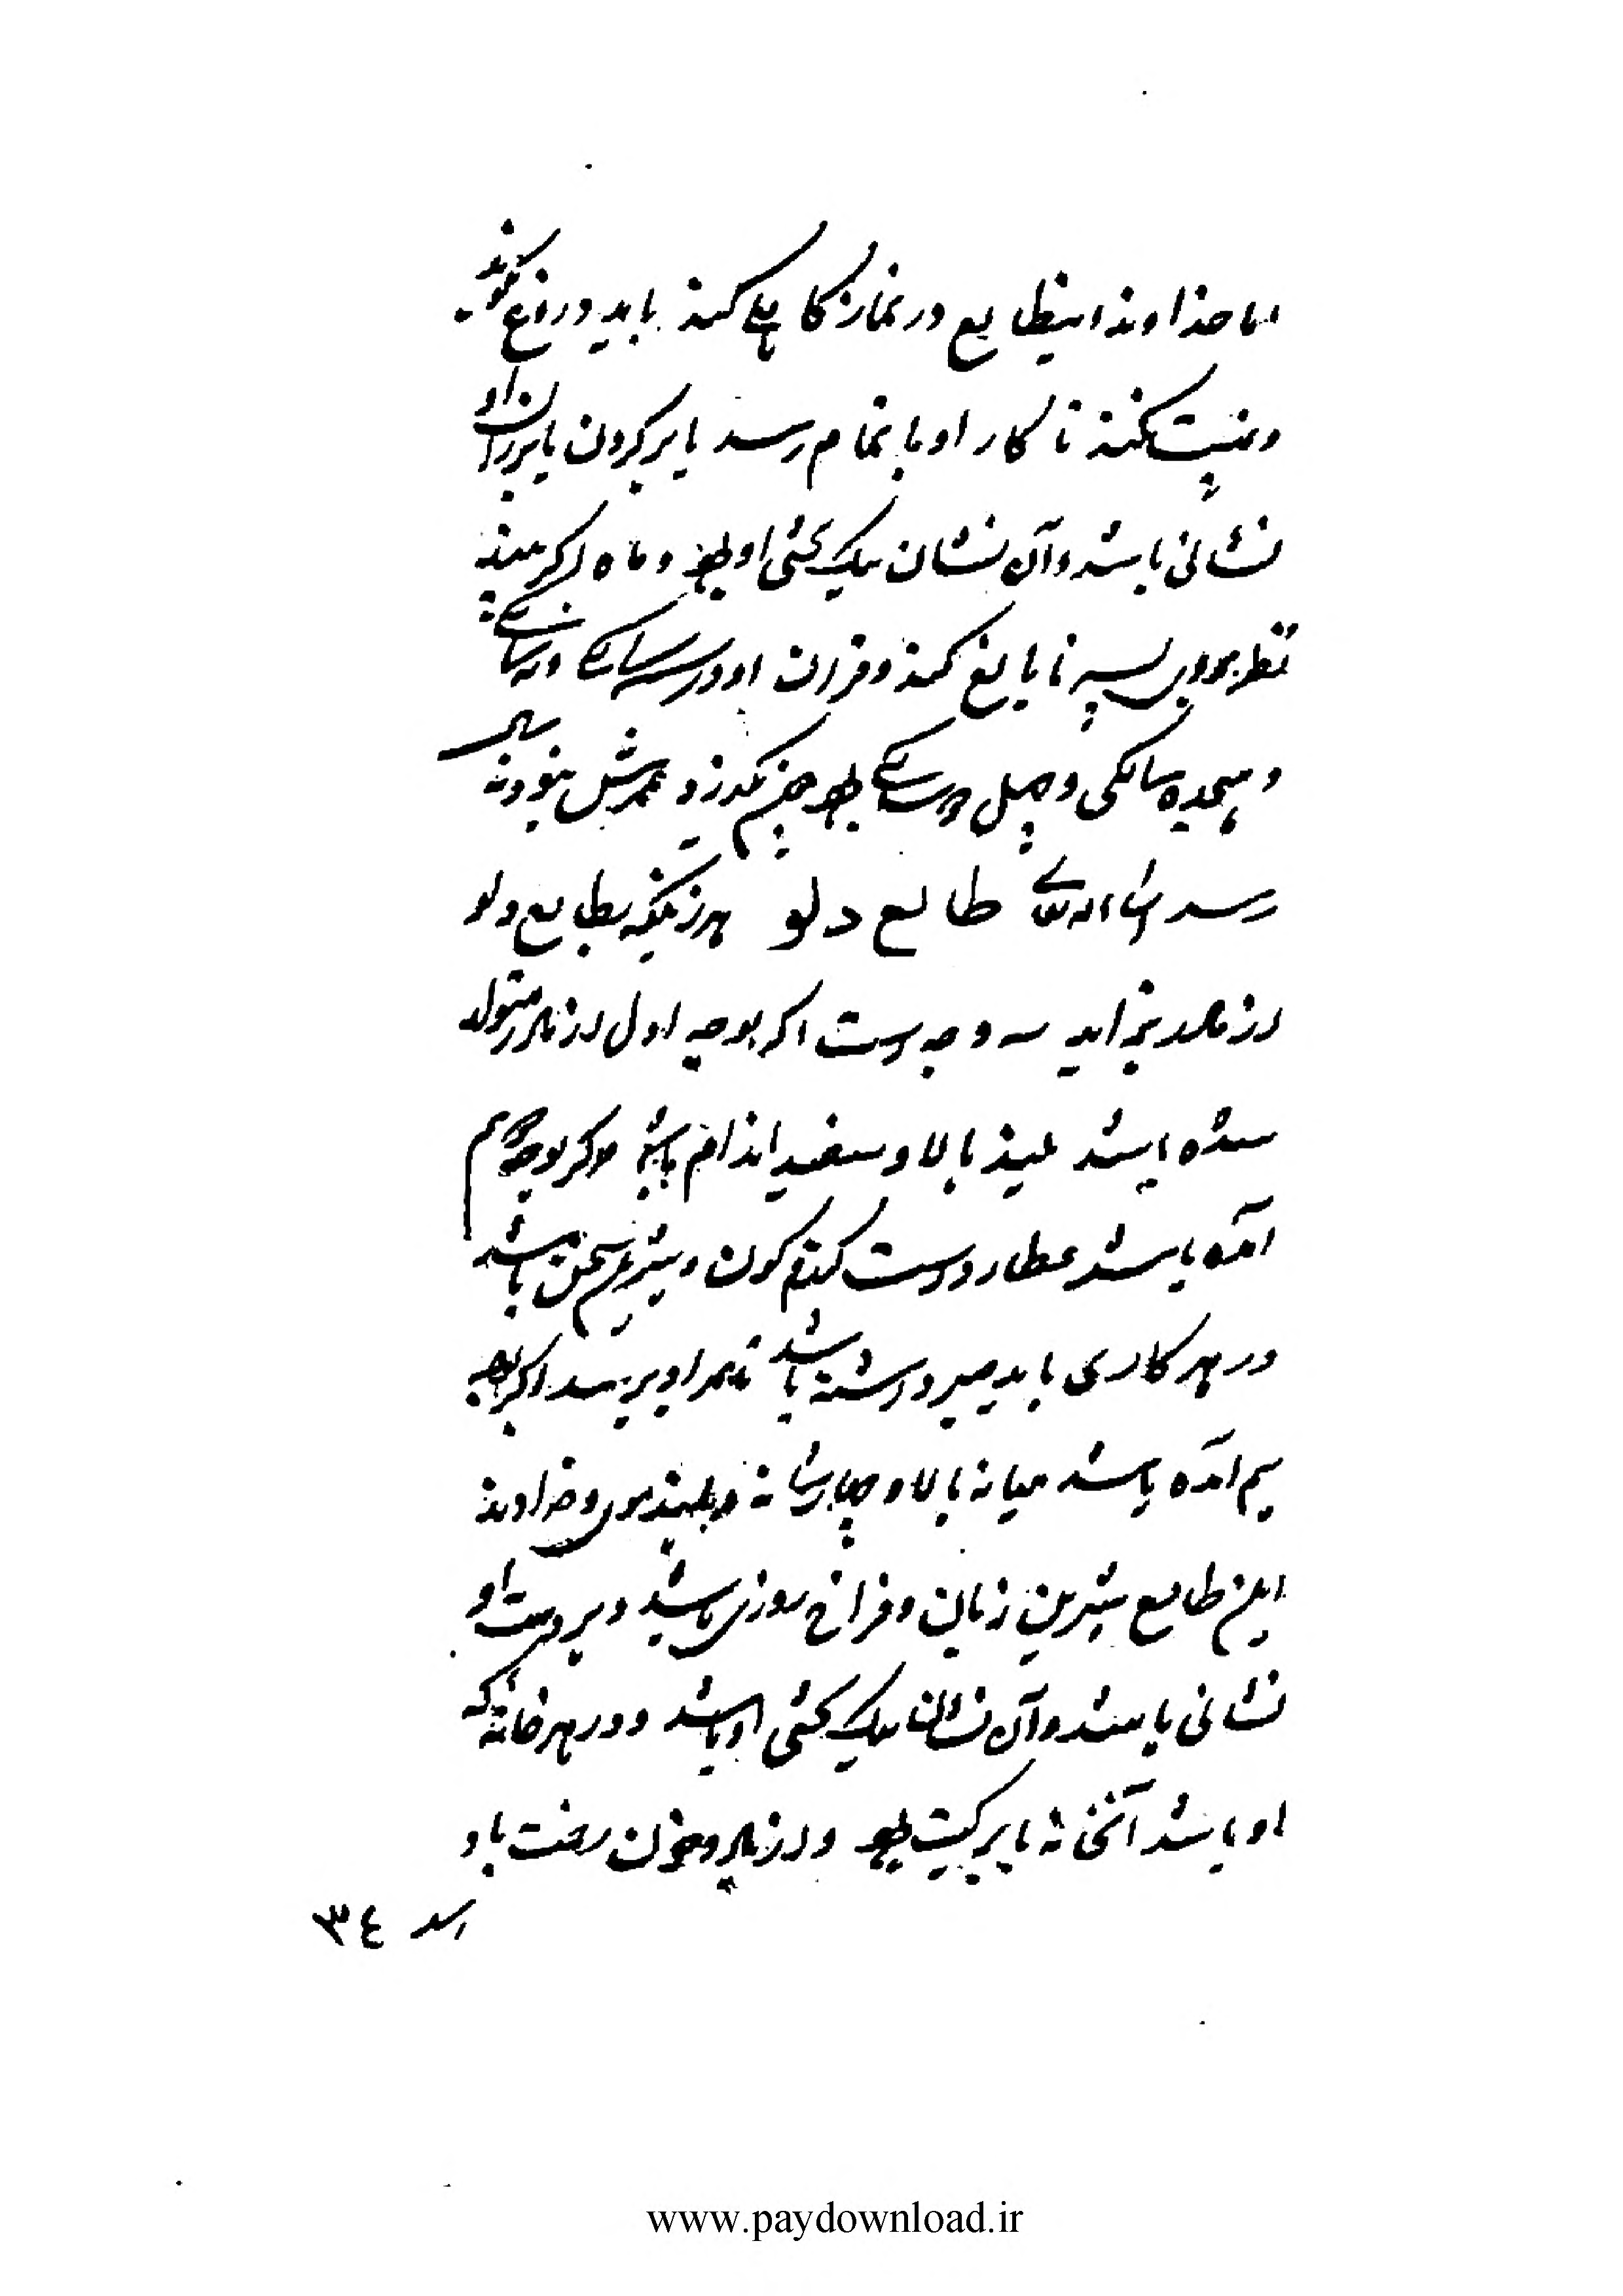 اما خداوند اینطالع در نماز کاهلی کند باید دروغ نگوید
و غیبت نکند تا کار او با تمام رسد یا بر گردن یا بر ران او
نشانی باشد و آن نشان نیک بختی او بود و ماه را که بیند
نظر بروی پسر نابالغ کند و قران او در سه سالگی و نه سالگی
و هیجده سالگی و چهل سالگی بود چون بگذرد عمرش بنود و نه سالگی
رسد انشاءالله طالع دلو هر زنیکه بطالع دلو
از مادر بزاید سه وجه است اگر بوجه اول از مادر متولد
شده باشد بلند بالا و سفید اندام باشد و اگر بوجه دویم
آمده باشد عطارد است گندم گون و شیرین سخن باشد
در هر کاری باید صبر داشته باشد تا بمراد برسد اگر بوجه
سیم آمده باشد میانه بالا و چهارشانه و بلند موی و خداوند
این طالع شیرین زبان و فراخ روزی باشد و بر دست او
نشانی باشد و آن نشان نیک بختی او باشد و در هر خانه که
او باشد آنخانه با برکت بود و از مار و خون رفت باد
اسد ٣٤
www.paydownload.ir